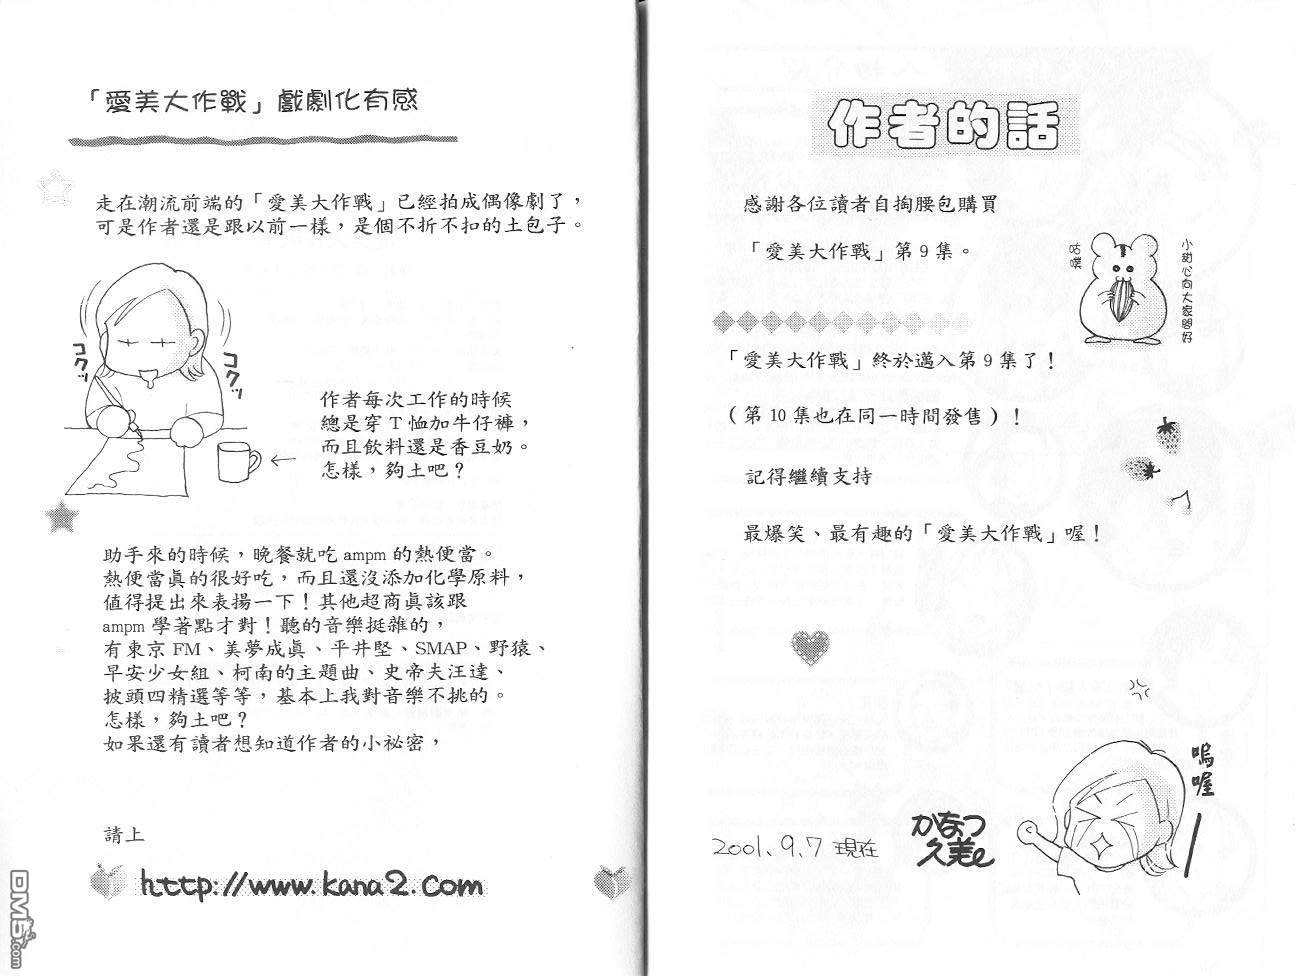 作者的話
感謝各位讀者自掏腰包購買
「愛美大作戰」第9集。
咕嘿
小甜心向大家問好
「愛美大作戰」終於邁入第9集了！
（第10集也在同一時間發售）！
記得繼續支持
最爆笑、最有趣的「愛美大作戰」喔！
嗚喔
2001、9、7 現在
かなつ
久美e
「愛美大作戰」戲劇化有感
走在潮流前端的「愛美大作戰」已經拍成偶像劇了，
可是作者還是跟以前一樣，是個不折不扣的土包子。
コクッ
コクッ
作者每次工作的時候
總是穿T恤加牛仔褲，
而且飲料還是香豆奶。
怎樣，夠土吧？
助手來的時候，晚餐就吃ampm的熱便當。
熱便當真的很好吃，而且還沒添加化學原料，
值得提出來表揚一下！其他超商真該跟
ampm學著點才對！聽的音樂挺雜的，
有東京FM、美夢成真、平井堅、SMAP、野猿、
早安少女組、柯南的主題曲、史帝夫汪達、
披頭四精選等等，基本上我對音樂不挑的。
怎樣，夠土吧？
如果還有讀者想知道作者的小祕密，
請上
http://www.kana2.com
DM5.com